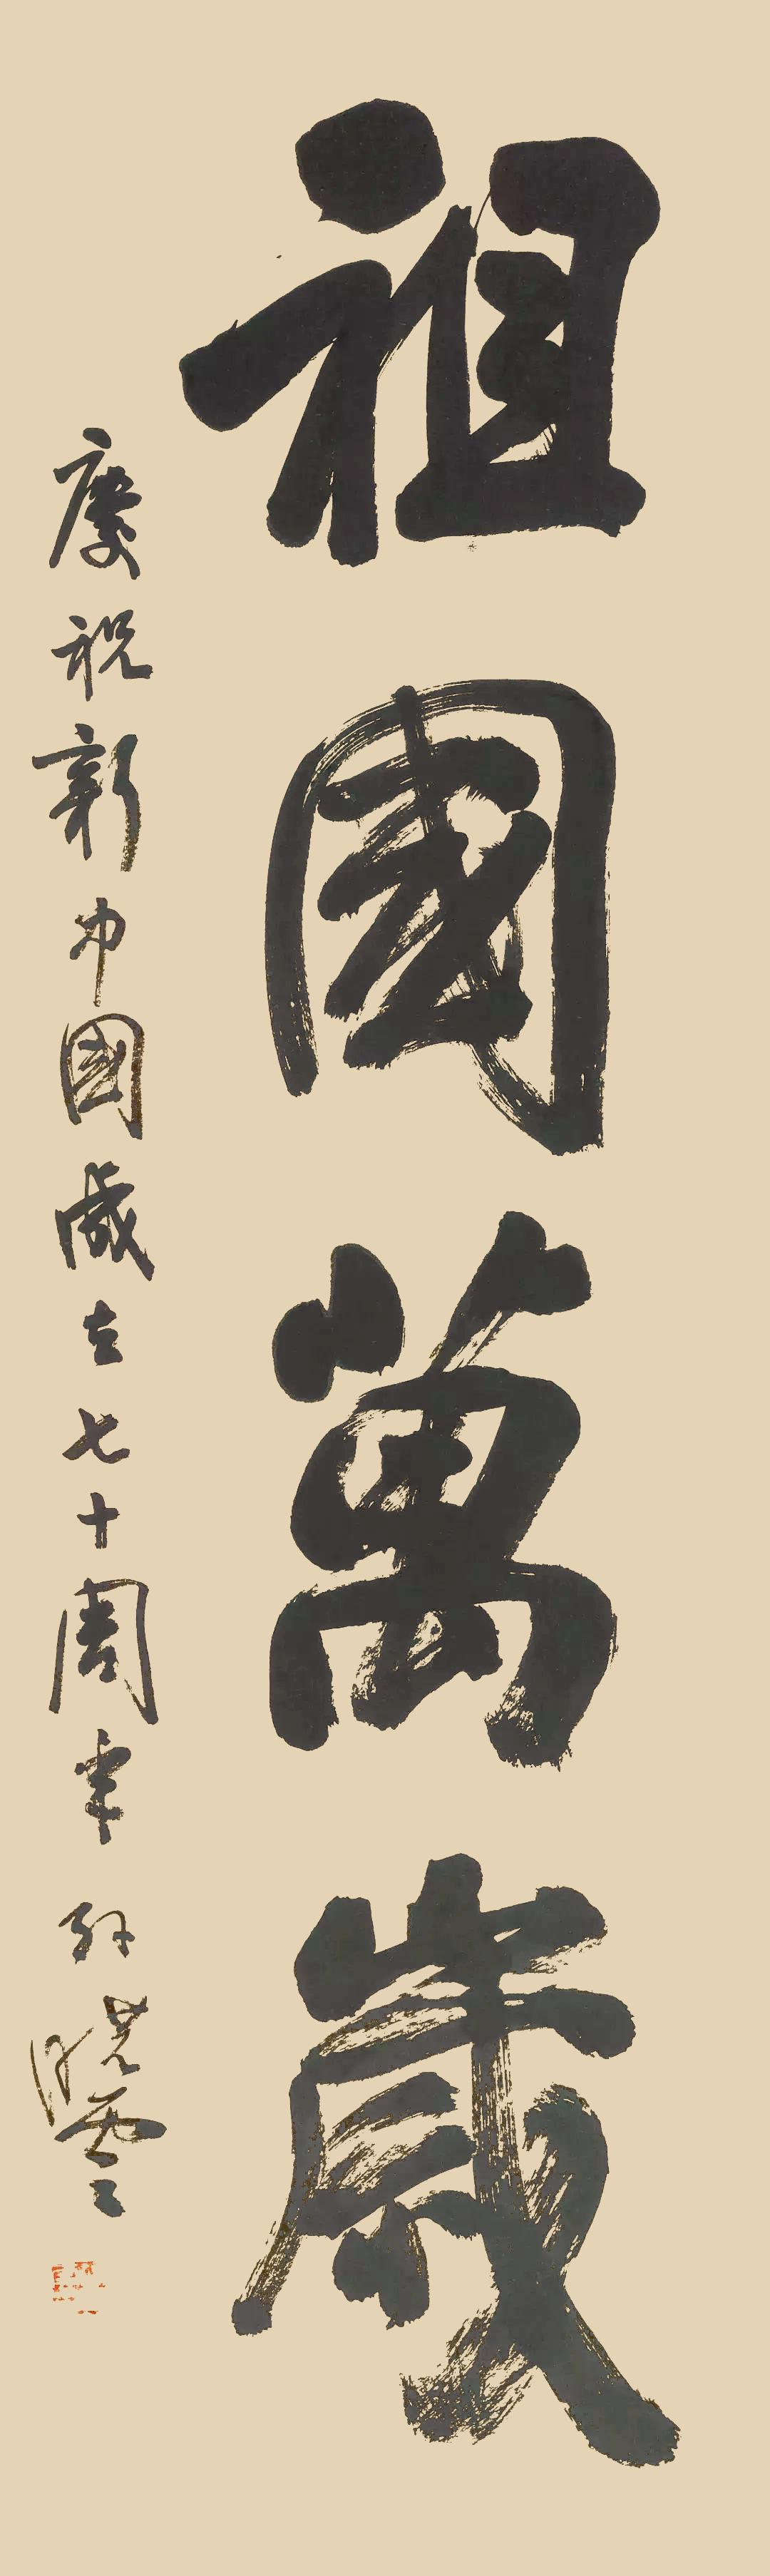 祖國萬歲
慶祝新中國成立七十周年 孫曉雲